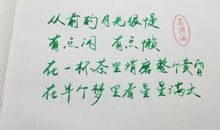 从前的月光很慢
有点闲 有点懒
在一杯茶里消磨整个黄昏
在半个梦里看星星满天